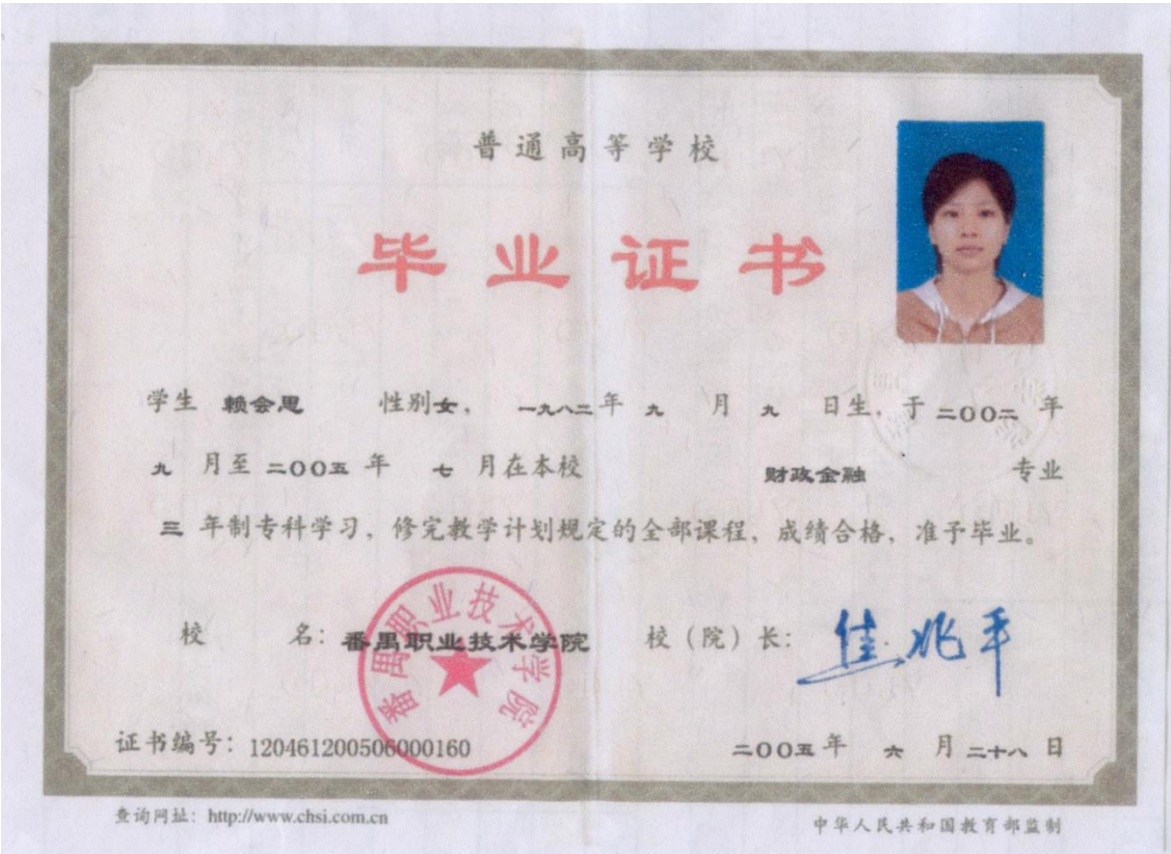 普通高等学校
毕业证书
学生 赖会思 性别女，一九八二年 九 月 九 日生，于二〇〇二 年
九 月至 二〇〇五 年 七 月在本校 财政金融 专业
三 年制专科学习，修完教学计划规定的全部课程，成绩合格，准予毕业。
校 名：番禺职业技术学院 校（院）长：
番禺职业技术学院
证书编号：120461200506000160 二〇〇五 年 六 月 二十八 日
查询网址：http://www.chsi.com.cn 中华人民共和国教育部监制